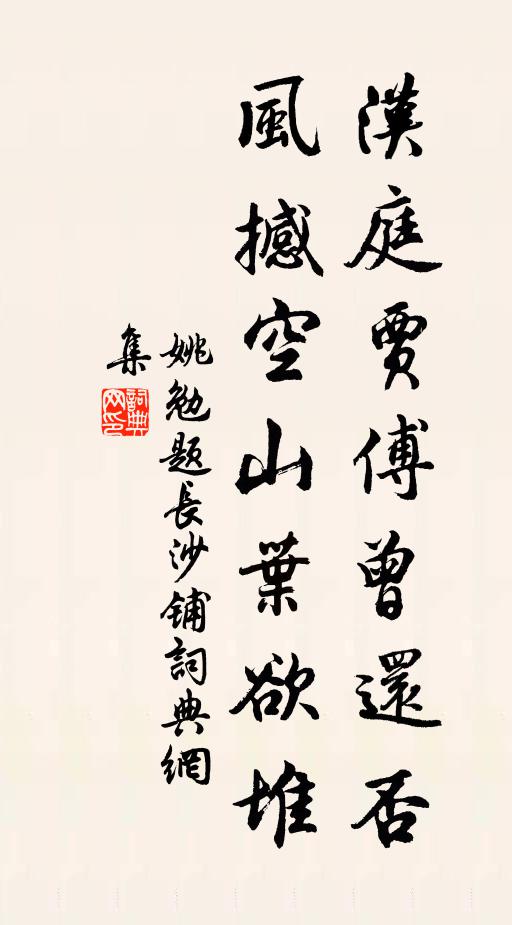 漢庭賈傅曾還否
風撼空山葉欲堆
姚勉題長沙鋪詞典網
集
詞典网印